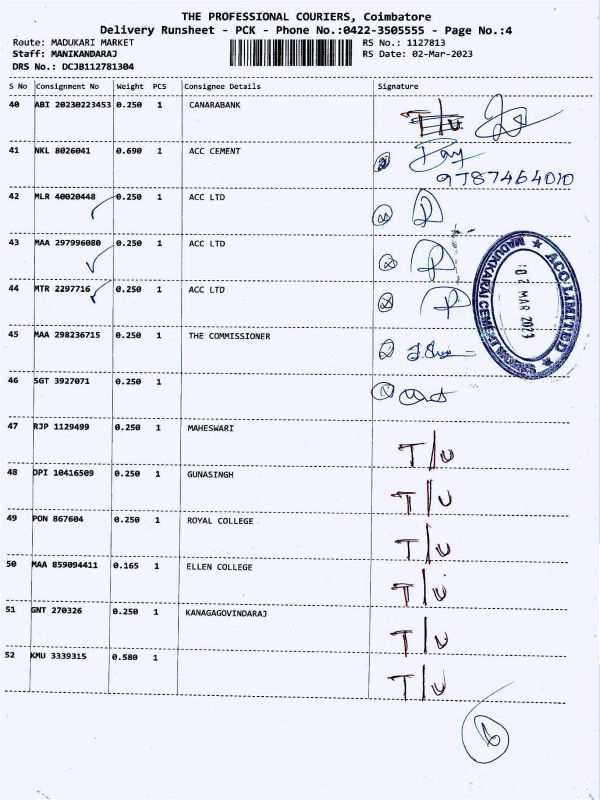 THE PROFESSIONAL COURIERS, Coimbatore
Delivery Runsheet - PCK - Phone No.:0422-3505555 - Page No.:4
Route: MADUKARI MARKET RS No.: 1127813
Staff: MANIKANDARAJ RS Date: 02-Mar-2023
DRS No.: DCJB112781304
S No Consignment No Weight PCS Consignee Details Signature
40 ABI 20230223453 0.250 1 CANARABANK T/U
41 NKL 8026041 0.690 1 ACC CEMENT
9787464010
42 MLR 40020448 0.250 1 ACC LTD
43 MAA 297996080 0.250 1 ACC LTD
44 MTR 2297716 0.250 1 ACC LTD
ACC LIMITED
02 MAR 2023
MADUKKARAI CEMENT WORKS
45 MAA 298236715 0.250 1 THE COMMISSIONER
46 SGT 3927071 0.250 1
47 RJP 1129499 0.250 1 MAHESWARI T/U
48 DPI 10416509 0.250 1 GUNASINGH T/U
49 PON 867604 0.250 1 ROYAL COLLEGE T/U
50 MAA 859094411 0.165 1 ELLEN COLLEGE T/U
51 GNT 270326 0.250 1 KANAGAGOVINDARAJ T/U
52 KMU 3339315 0.580 1 T/U
6